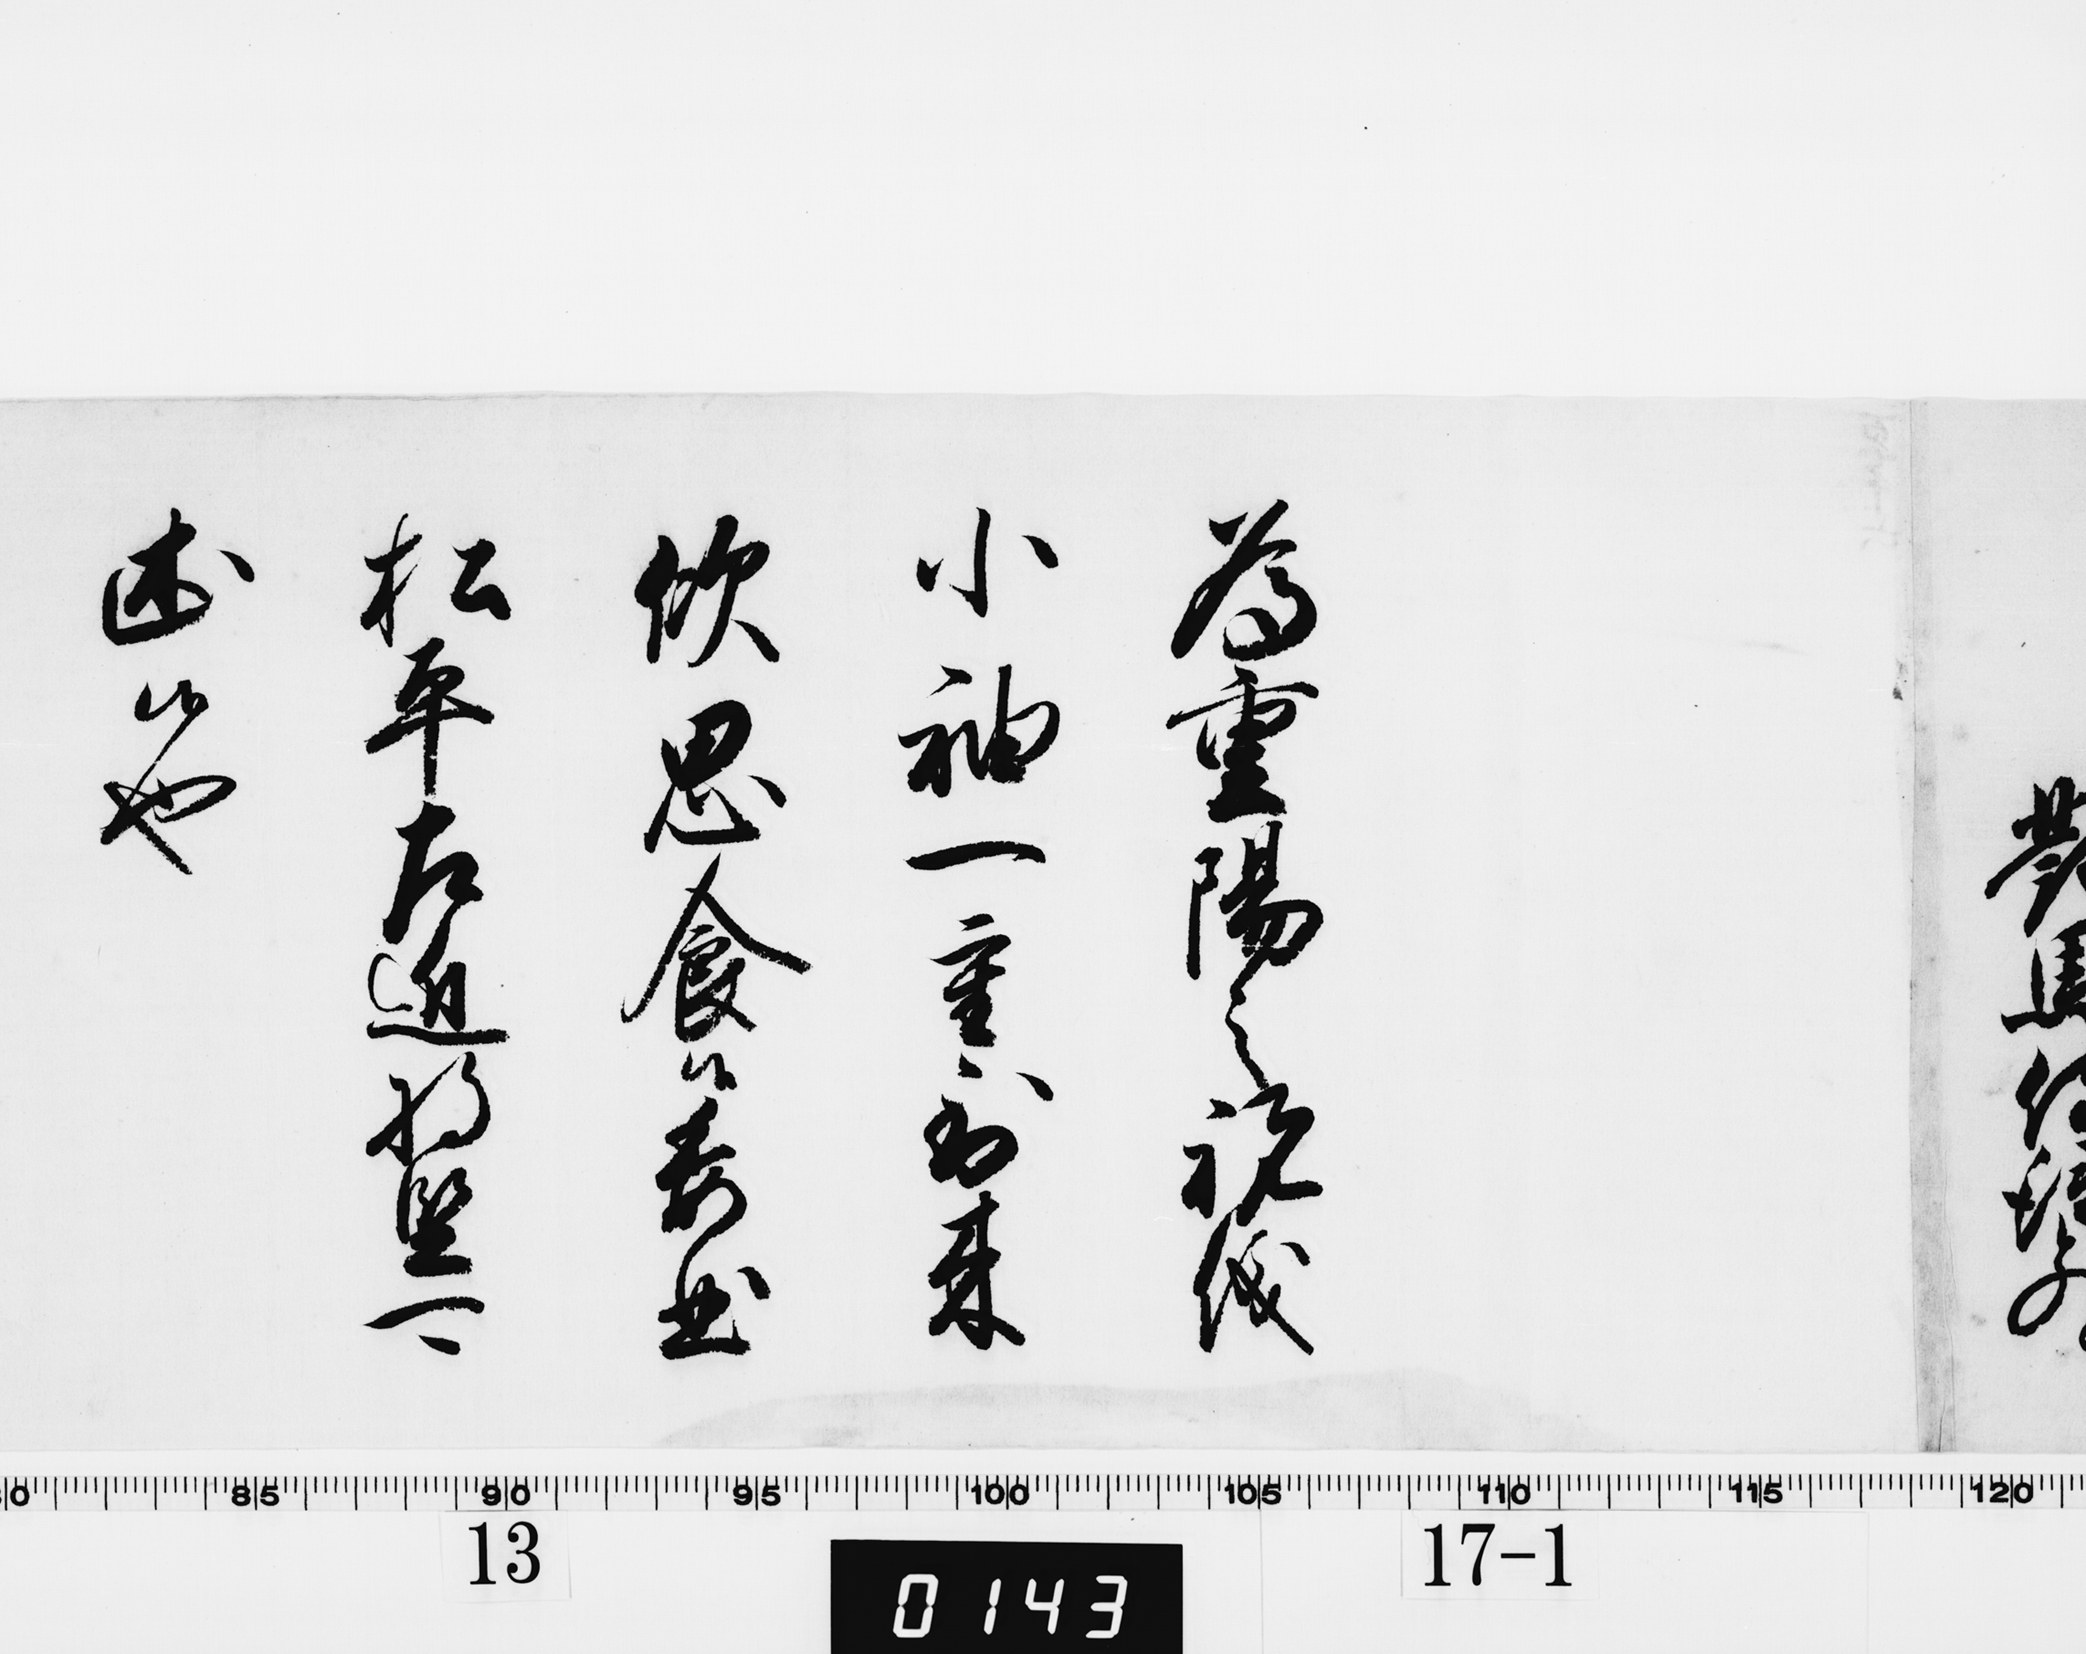 對馬侍従
為重陽之祝儀
小袖一重到来
歓思食候委曲
松平左近将監可
述候也
85 90 95 100 105 110 115 120
13 17-1
0143